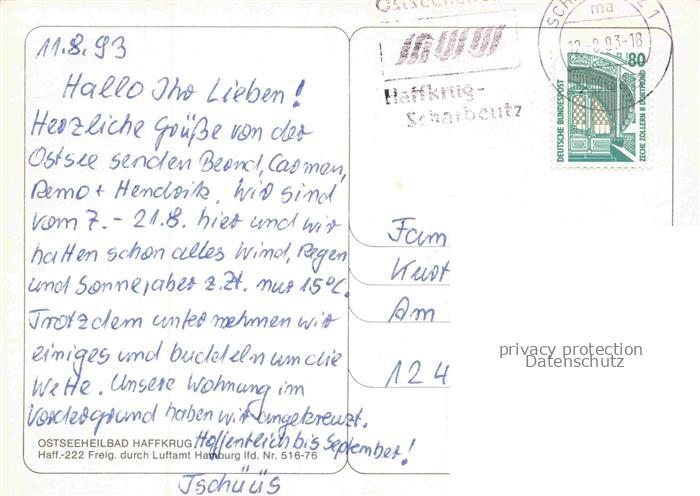 11.8.93
Hallo Ihr Lieben!
Herzliche Grüße von der
Ostsee senden Bernd, Carmen,
Remo + Hendrik. Wir sind
vom 7. - 21.8. hier und wir
hatten schon alles Wind, Regen
und Sonne, aber z.Zt. nur 15°C.
Trotzdem unternehmen wir
einiges und buddeln um die
Wette. Unsere Wohnung im
Vordergrund haben wir angekreuzt.
Hoffentlich bis September!
Tschüüs
OSTSEEHEILBAD HAFFKRUG
Haff.-222 Freig. durch Luftamt Hamburg lfd. Nr. 516-76
Haffkrug-
Scharbeutz
ma
12.-8.93-18
80
DEUTSCHE BUNDESPOST
ZECHE ZOLLERN II DORTMUND
Fam
Kurt
Am
124
privacy protection
Datenschutz